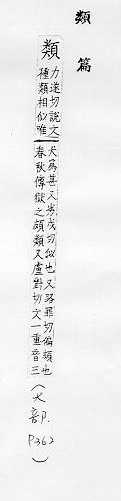 類篇
類
力遂切說文
種類相似唯
犬為甚又盧戈切似也又路罪切偏類也
春秋傳獄之頗類又盧對切文一重音三(犬部.P362)